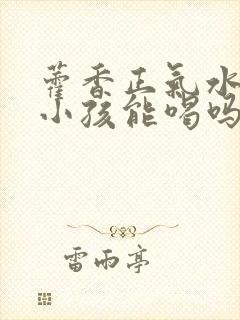 藿香正氣水
小孩能喝吗
雷雨亭